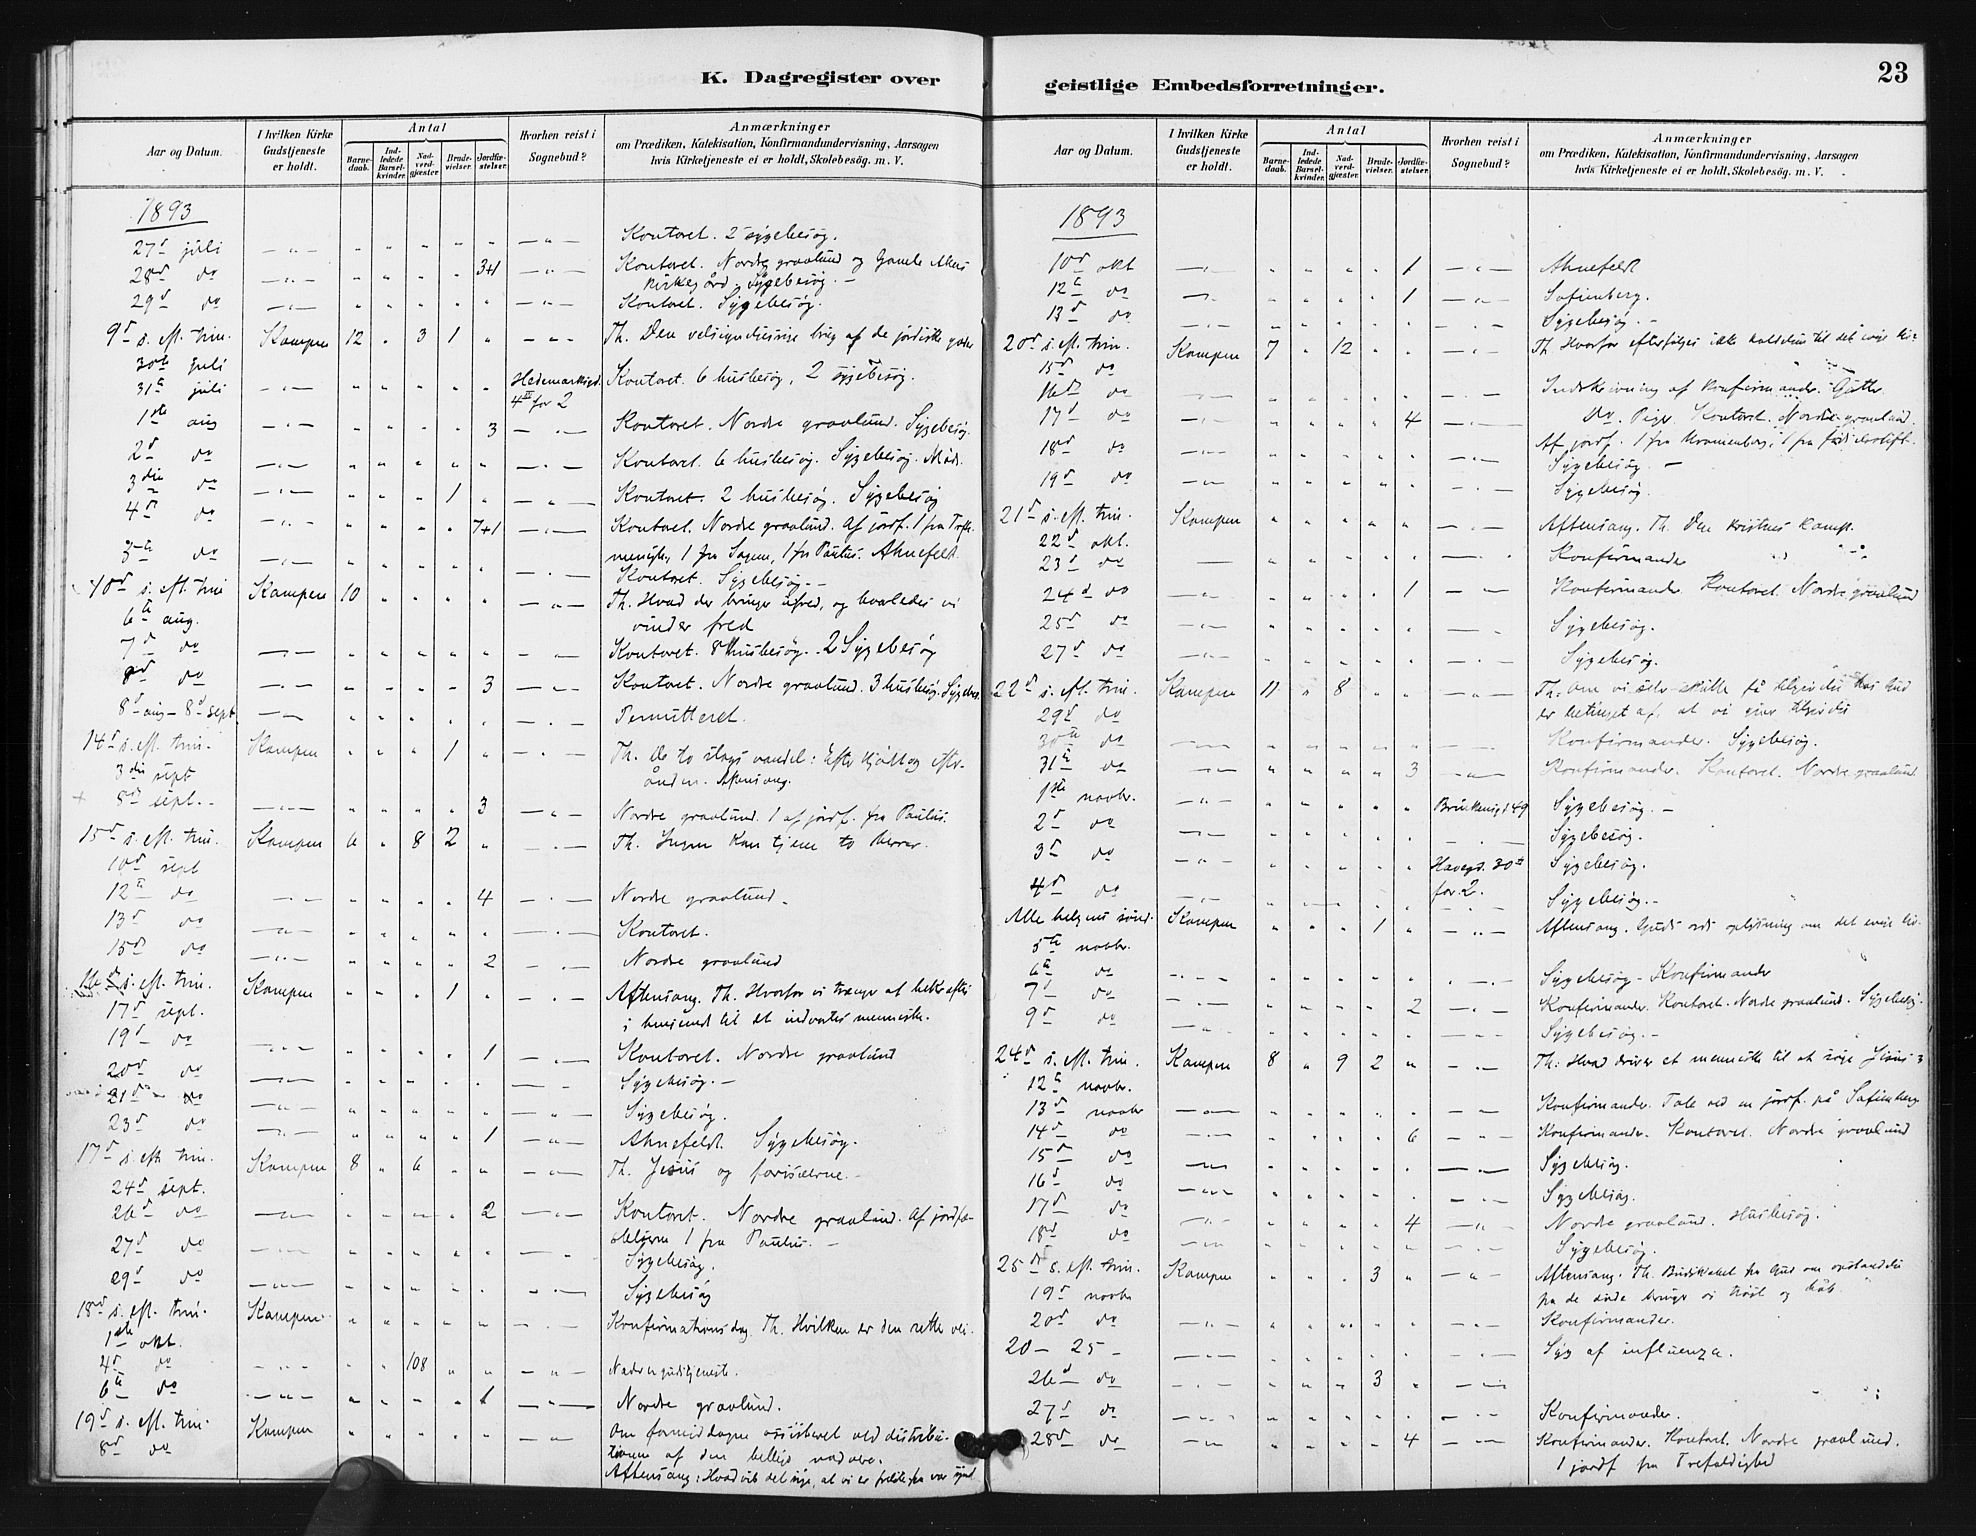 K. Dagregister over
Aar og Datum.
I hvilken Kirke Gudstjeneste er holdt.
Antal
Barnedaab.
Indledede Barselkvinder.
Nadverdgjæster.
Brudevielser.
Jordfæstelser.
Hvorhen reist i Sognebud?
Anmærkninger
om Prædiken, Katekisation, Konfirmandundervisning, Aarsagen
hvis Kirketjeneste ei er holdt, Skolebesög. m. V.
1893
27d juli — „ — „ „ „ „ „ — „ — Kontoret. 2 sygebesøg.
28d do — „ — „ „ „ „ 3+1 — „ — Kontoret. Nordre gravlund og Gamle Akers
kirkegård. Sygebesøg. —
29d do — „ — „ „ „ „ „ — „ — Kontoret. Sygebesøg.
9d s. eft. trin. Kampen 12 „ 3 1 „ — „ — Th. Den velsignelsesrige brug af de jordiske goder
30te juli
31te juli — „ — „ „ „ „ „ Hedemarksgd. Kontoret. 6 husbesøg, 2 sygebesøg.
4 II for 2
1ste aug — „ — „ „ „ „ 3 — „ — Kontoret. Nordre gravlund. Sygebesøg.
2d do — „ — „ „ „ „ „ — „ — Kontoret. 6 husbesøg. Sygebesøg. Møde.
3die do — „ — „ „ „ 1 „ — „ — Kontoret. 2 husbesøg. Sygebesøg
4d do — „ — „ „ „ „ 7+1 — „ — Kontoret. Nordre gravlund. Af jordf. 1 fra
1 fra Sagene, 1 fra Paulus. Ahnefeldt.
5te do — „ — „ „ „ „ „ — „ — Kontoret. Sygebesøg. —
10d s. eft. trin Kampen 10 „ „ „ „ — „ — Th. Hvad der bringer ufred, og hvorledes vi
6te aug. vinder fred
7d do — „ — „ „ „ „ „ — „ — Kontoret. 8 husbesøg. 2 Sygebesøg
8d do — „ — „ „ „ „ 3 — „ — Kontoret. Nordre gravlund. 3 husbesøg. Sygebes.
8d aug — 8d sept. — „ — „ „ „ „ „ — „ — Permitteret.
14d s. eft. trin. Kampen „ „ „ 1 „ — „ — Th. De to slags vandel: Efter kjødet og efter
3die sept ånden. Aftensang.
+ 8d sept. — „ — „ „ „ „ 3 — „ — Nordre gravlund. 1 af jordf. fra Paulus.
15d s. eft. trin. Kampen 6 „ 8 2 „ — „ — Th. Ingen kan tjene to Herrer.
10d sept
12te do — „ — „ „ „ „ 4 — „ — Nordre gravlund.
13d do — „ — „ „ „ „ „ — „ — Kontoret.
15d do — „ — „ „ „ „ 2 — „ — Nordre gravlund
16d s. eft. trin. Kampen „ „ „ 1 „ — „ — Aftensang. Th. Hvorfor vi trænger at bede efter
17d sept. i henseende til det indvortes menneske.
19d do — „ — „ „ „ „ 1 — „ — Kontoret. Nordre gravlund
20d do — „ — „ „ „ „ „ — „ — Sygebesøg. —
21d do — „ — „ „ „ „ „ — „ — Sygebesøg.
23d do — „ — „ „ „ „ 1 — „ — Ahnefeldt. Sygebesøg.
17d s. eft. trin. Kampen 8 „ 6 „ „ — „ — Th. Jesus og fariseerne. —
24d sept.
26d do — „ — „ „ „ „ 2 — „ — Kontoret. Nordre gravlund. Af jordfæ-
stelserne 1 fra Paulus. —
27d do — „ — „ „ „ „ „ — „ — Sygebesøg.
29d do — „ — „ „ „ „ „ — „ — Sygebesøg
18d s. eft. trin. Kampen „ „ „ „ „ — „ — Konfirmationsdag. Th. Hvilken er den rette vei.
1ste okt.
4d do — „ — „ „ 108 „ „ — „ — Nadvergudstjeneste.
6te do — „ — „ „ „ „ 1 — „ — Nordre gravlund.
19d s. eft. trin. Kampen „ „ „ „ „ — „ — Om formiddagen assisteret ved distribu-
8d do tionen af den hellige nadvere.
Aftensang: Hvad vil det sige, at vi er frelste fra vor synd
geistlige Embedsforretninger.
23
Aar og Datum.
I hvilken Kirke Gudstjeneste er holdt.
Antal
Barnedaab.
Indledede Barselkvinder.
Nadverdgjæster.
Brudevielser.
Jordfæstelser.
Hvorhen reist i Sognebud?
Anmærkninger
om Prædiken, Katekisation, Konfirmandundervisning, Aarsagen
hvis Kirketjeneste ei er holdt, Skolebesög. m. V.
1893
10d okt — „ — „ „ „ „ 1 — „ — Ahnefeldt
12te do — „ — „ „ „ „ 1 — „ — Sofienberg.
13d do — „ — „ „ „ „ „ — „ — Sygebesøg. —
20d s. eft. trin. Kampen 7 „ 12 „ „ — „ — Th Hvorfor efterfølges ikke kaldelsen til det evige liv
15d do
16d do — „ — „ „ „ „ „ — „ — Indskrivning af konfirmander. Gutter
17d do — „ — „ „ „ „ 4 — „ — Do. Piger. Kontoret. Nordre gravlund.
Af jordf. 1 fra Kroneborg, 1 fra fødselsstift.
18d do — „ — „ „ „ „ „ — „ — Sygebesøg —
19d do — „ — „ „ „ „ „ — „ — Sygebesøg.
21d s. eft. trin. Kampen „ „ „ „ „ — „ — Aftensang. Th. Den kristnes kamp.
22d okt.
23d do — „ „ „ „ „ — „ — Konfirmander
24d do — „ — „ „ „ „ 1 — „ — Konfirmander. Kontoret. Nordre gravlund
25d do — „ — „ „ „ „ „ — „ — Sygebesøg.
27d do — „ — „ „ „ „ „ — „ — Sygebesøg.
22d s. eft. trin. Kampen 11 „ 8 „ „ — „ — Th. Om vi selv skulle få tilgivelse hos Gud
29d do er betinget af, at vi giver tilgivelse
30te do — „ — „ „ „ „ „ — „ — Konfirmander. Sygebesøg.
31te do — „ — „ „ „ „ 3 — „ — Konfirmander. Kontoret. Nordre gravlund
1ste novbr. — „ — „ „ „ „ „ 49 Sygebesøg. —
2d do — „ — „ „ „ „ „ — „ — Sygebesøg.
3d do — „ — „ „ „ „ „ Havegd. 30 II Sygebesøg.
for 2.
4d do — „ — „ „ „ „ „ — „ — Sygebesøg. —
Alle helgens sønd. Kampen „ „ „ 1 „ — „ — Aftensang. Guds ords oplysning om det evige liv.
5te novbr.
6te do — „ — „ „ „ „ „ — „ — Sygebesøg. Konfirmander
7d do — „ — „ „ „ „ 2 — „ — Konfirmander. Kontoret. Nordre gravlund. Sygebesøg.
9d do — „ — „ „ „ „ „ — „ — Sygebesøg. —
24d s. eft. trin. Kampen 8 „ 9 2 „ — „ — Th: Hvad driver et menneske til at søge Jesus?
12te novbr.
13d novbr — „ — „ „ „ „ „ — „ — Konfirmander. Tale ved en jordf. på Sofienberg
14d do — „ — „ „ „ „ 6 — „ — Konfirmander. Kontoret. Nordre gravlund
15d do — „ — „ „ „ „ „ — „ — Sygebesøg.
16d do — „ — „ „ „ „ „ — „ — Sygebesøg.
17d do — „ — „ „ „ „ 4 — „ — Nordre gravlund. Husbesøg.
18d do — „ — „ „ „ „ „ — „ — Sygebesøg.
25d s. eft. trin. Kampen „ „ „ 3 „ — „ — Aftensang. Th. Budskabet fra Gud om opstandelse
19d novbr fra de døde bringer os trøst og håb.
20d do — „ — „ „ „ „ „ — „ — Konfirmander.
20 — 25 — — „ — „ „ „ „ „ — „ — Syg af influenza.
26d do — „ — „ „ „ 3 „ — „ —
27d do — „ — „ „ „ „ „ — „ — Konfirmander.
28d do — „ — „ „ „ „ 4 — „ — Konfirmander. Kontoret. Nordre gravlund.
1 jordf fra Trefoldighed